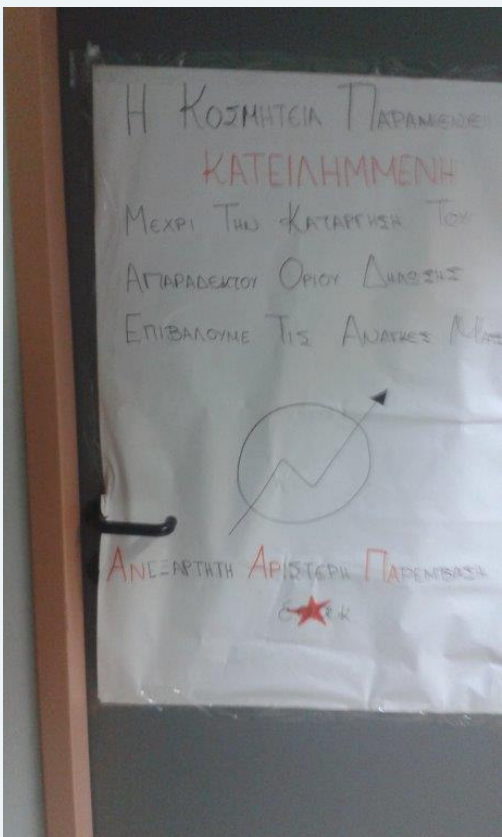 Η ΚΟΣΜΗΤΕΙΑ ΠΑΡΑΜΕΝΕΙ
ΚΑΤΕΙΛΗΜΜΕΝΗ
ΜΕΧΡΙ ΤΗΝ ΚΑΤΑΡΓΗΣΗ ΤΟΥ
ΑΠΑΡΑΔΕΚΤΟΥ ΟΡΙΟΥ ΔΗΛΩΣΗΣ
ΕΠΙΒΑΛΟΥΜΕ ΤΙΣ ΑΝΑΓΚΕΣ ΜΑΣ
ΑΝΕΞΑΡΤΗΤΗ ΑΡΙΣΤΕΡΗ ΠΑΡΕΜΒΑΣΗ